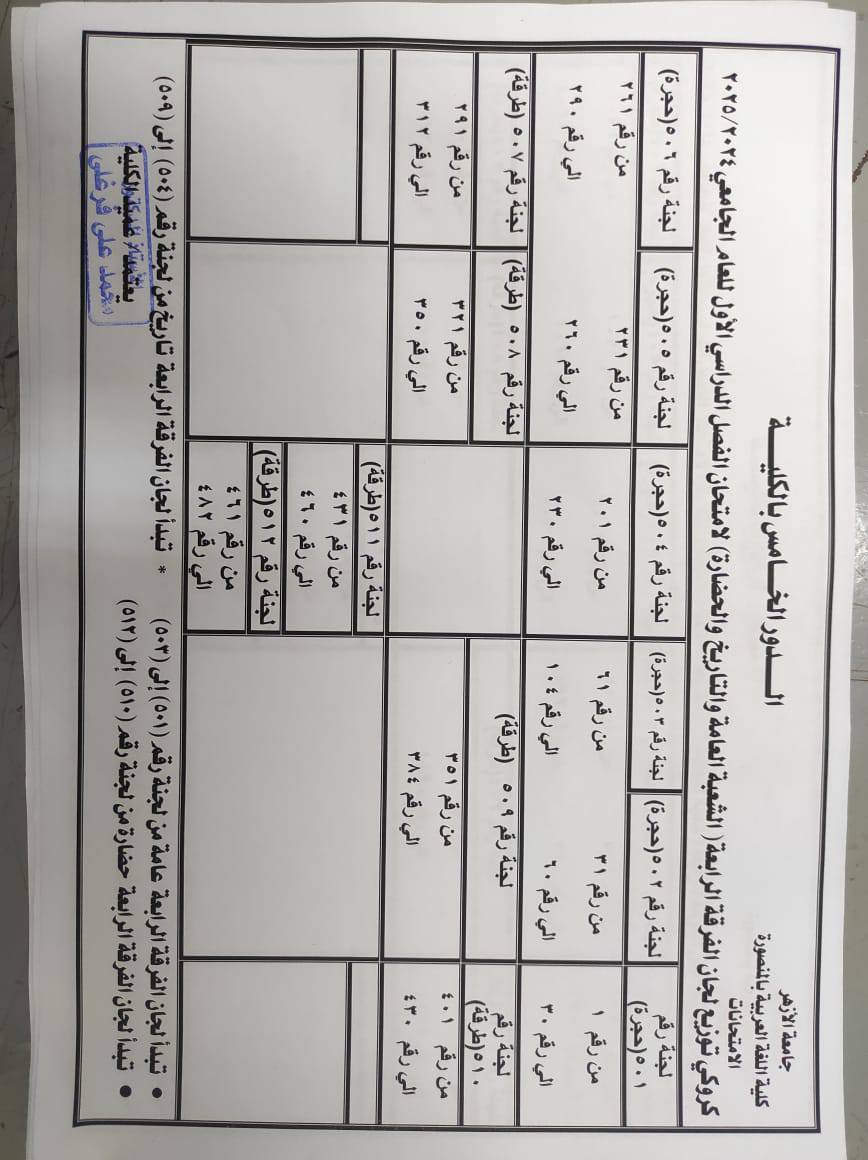 جامعة الأزهر
كلية اللغة العربية بالمنصورة
الامتحانات
الـــدور الخـــامس بـالكليـــــة
كروكي توزيع لجان الفرقة الرابعة( الشعبة العامة والتاريخ والحضارة) لامتحان الفصل الدراسي الأول للعام الجامعي ٢٠٢٥/٢٠٢٤
لجنة رقم ٥٠١(حجرة)
من رقم ١
الي رقم ٣٠
لجنة رقم ٥٠٢ (حجرة)
من رقم ٣١
الي رقم ٦٠
لجنة رقم ٥٠٣(حجرة)
من رقم ٦١
الي رقم ١٠٤
لجنة رقم ٥٠٤ (حجرة)
من رقم ٢٠١
الي رقم ٢٣٠
لجنة رقم ٥٠٥ (حجرة)
من رقم ٢٣١
الي رقم ٢٦٠
لجنة رقم ٥٠٦ (حجرة)
من رقم ٢٦١
الي رقم ٢٩٠
لجنة رقم ٥١٠(طرقة)
من رقم ٤٠١
الي رقم ٤٣٠
لجنة رقم ٥٠٩ (طرقة)
من رقم ٣٥١
الي رقم ٣٨٤
لجنة رقم ٥٠٨ (طرقة)
من رقم ٣٢١
الي رقم ٣٥٠
لجنة رقم ٥٠٧ (طرقة)
من رقم ٢٩١
الي رقم ٣١٢
لجنة رقم ٥١١ (طرقة)
من رقم ٤٣١
الي رقم ٤٦٠
لجنة رقم ٥١٢(طرقة)
من رقم ٤٦١
الي رقم ٤٨٢
● تبدأ لجان الفرقة الرابعة عامة من لجنة رقم (٥٠١) إلى (٥٠٣) * تبدأ لجان الفرقة الرابعة تاريخ من لجنة رقم (٥٠٤) إلى (٥٠٩)
● تبدأ لجان الفرقة الرابعة حضارة من لجنة رقم (٥١٠) إلى (٥١٢)
يعتمد عميد الكلية
محمد على فرغلى